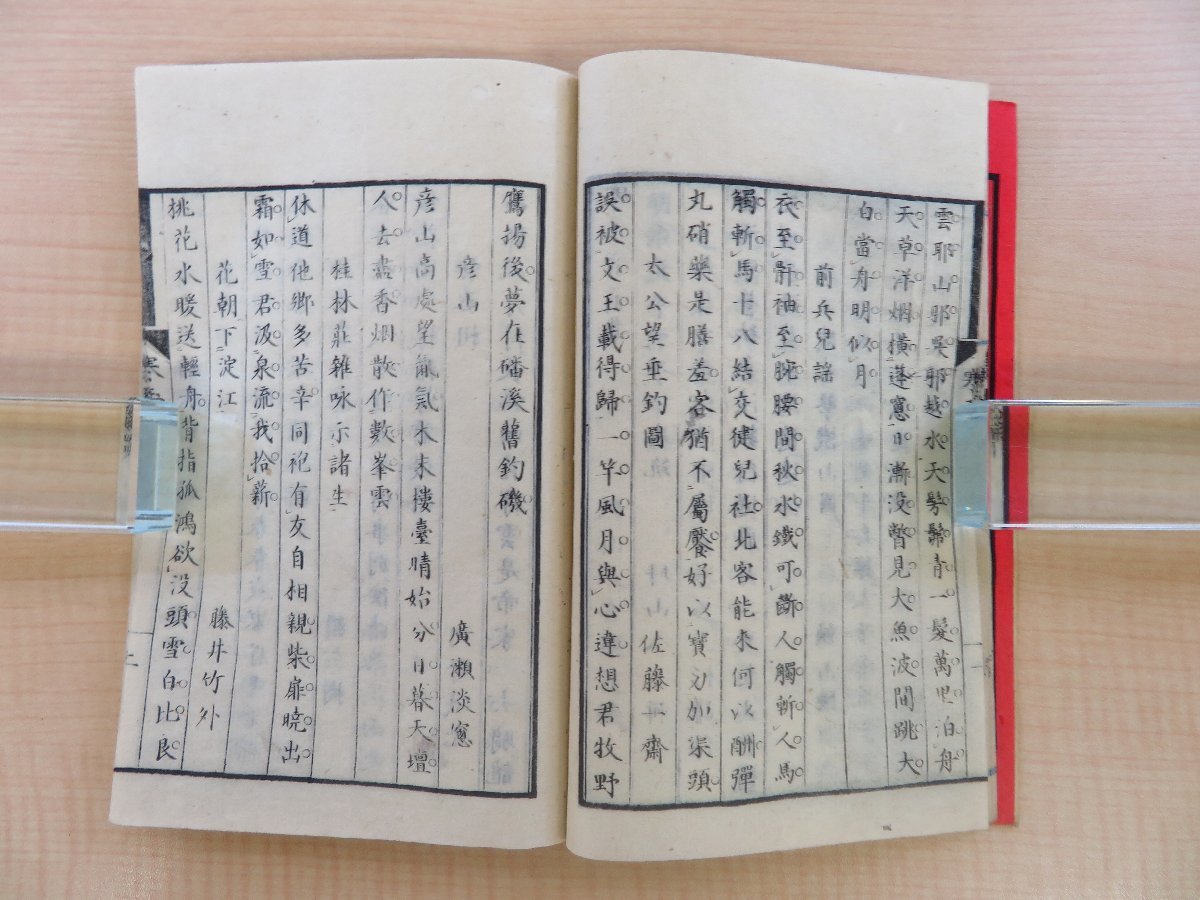 雲耶山耶呉耶越水天髣髴青一髮萬里泊舟
天草洋烟橫蓬窓日漸沒瞥見大魚波間跳大
白當舟明似月
前兵兒謠
衣至骭袖至腕腰間秋水鐵可斷人觸斬人馬
觸斬馬十八結交健兒社北客能來何以酬彈
丸硝藥是膳羞客猶不屬饜好以寶刀加渠頭
太公望垂釣圖 佐藤一齋
誤被文王載得歸一竿風月與心違想君牧野
鷹揚後夢在磻溪舊釣磯
彦山 廣瀬淡窓
彦山高處望氤氳木末樓臺晴始分日暮天壇
人去盡香烟散作數峯雲
桂林莊雜咏示諸生
休道他鄉多苦辛同袍有友自相親柴扉曉出
霜如雪君汲泉流我拾薪
花朝下淀江 藤井竹外
桃花水暖送輕舟背指孤鴻欲没頭雪白比良